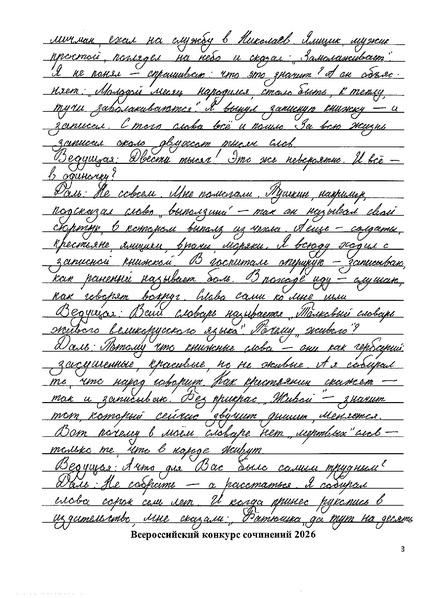 мичман, ехал на службу в Николаев. Ямщик, мужик
простой, поглядел на небо и сказал: „Замолаживает".
Я не понял – спрашиваю: что это значит? А он объяс-
няет: „Молодой месяц народился, стало быть, к теплу,
тучи заволакиваются". Я вынул записную книжку – и
записал. С того слова всё и пошло. За всю жизнь
записал около двухсот тысяч слов.
Ведущая: Двести тысяч! Это же невероятно. И всё –
в одиночку?
Даль: Не совсем. Мне помогали. Пушкин, например,
подсказал слово „выползина" – так он называл свой
сюртук, в котором выполз из числа. А ещё – солдаты,
крестьяне, ямщики, врачи, моряки. Я всюду ходил с
записной книжкой. В госпитале оперирую – записываю,
как раненый называет боль. В походе иду – слушаю,
как говорят вокруг. Слова сами ко мне шли.
Ведущая: Ваш словарь называется „Толковый словарь
живого великорусского языка". Почему „живого"?
Даль: Потому что книжные слова – они как гербарий:
засушенные, красивые, но не живые. А я собирал
то, что народ говорит. Как крестьянин скажет –
так и записываю. Без прикрас. „Живой" – значит
тот, который сейчас звучит, дышит, меняется.
Вот почему в моём словаре нет „мертвых" слов –
только те, что в народе живут.
Ведущая: А что для Вас было самым трудным?
Даль: Не собрать – а расстаться. Я собирал
слова сорок семь лет. И когда принес рукопись в
издательство, мне сказали: „Батюшка, да тут на десять
Всероссийский конкурс сочинений 2026
3